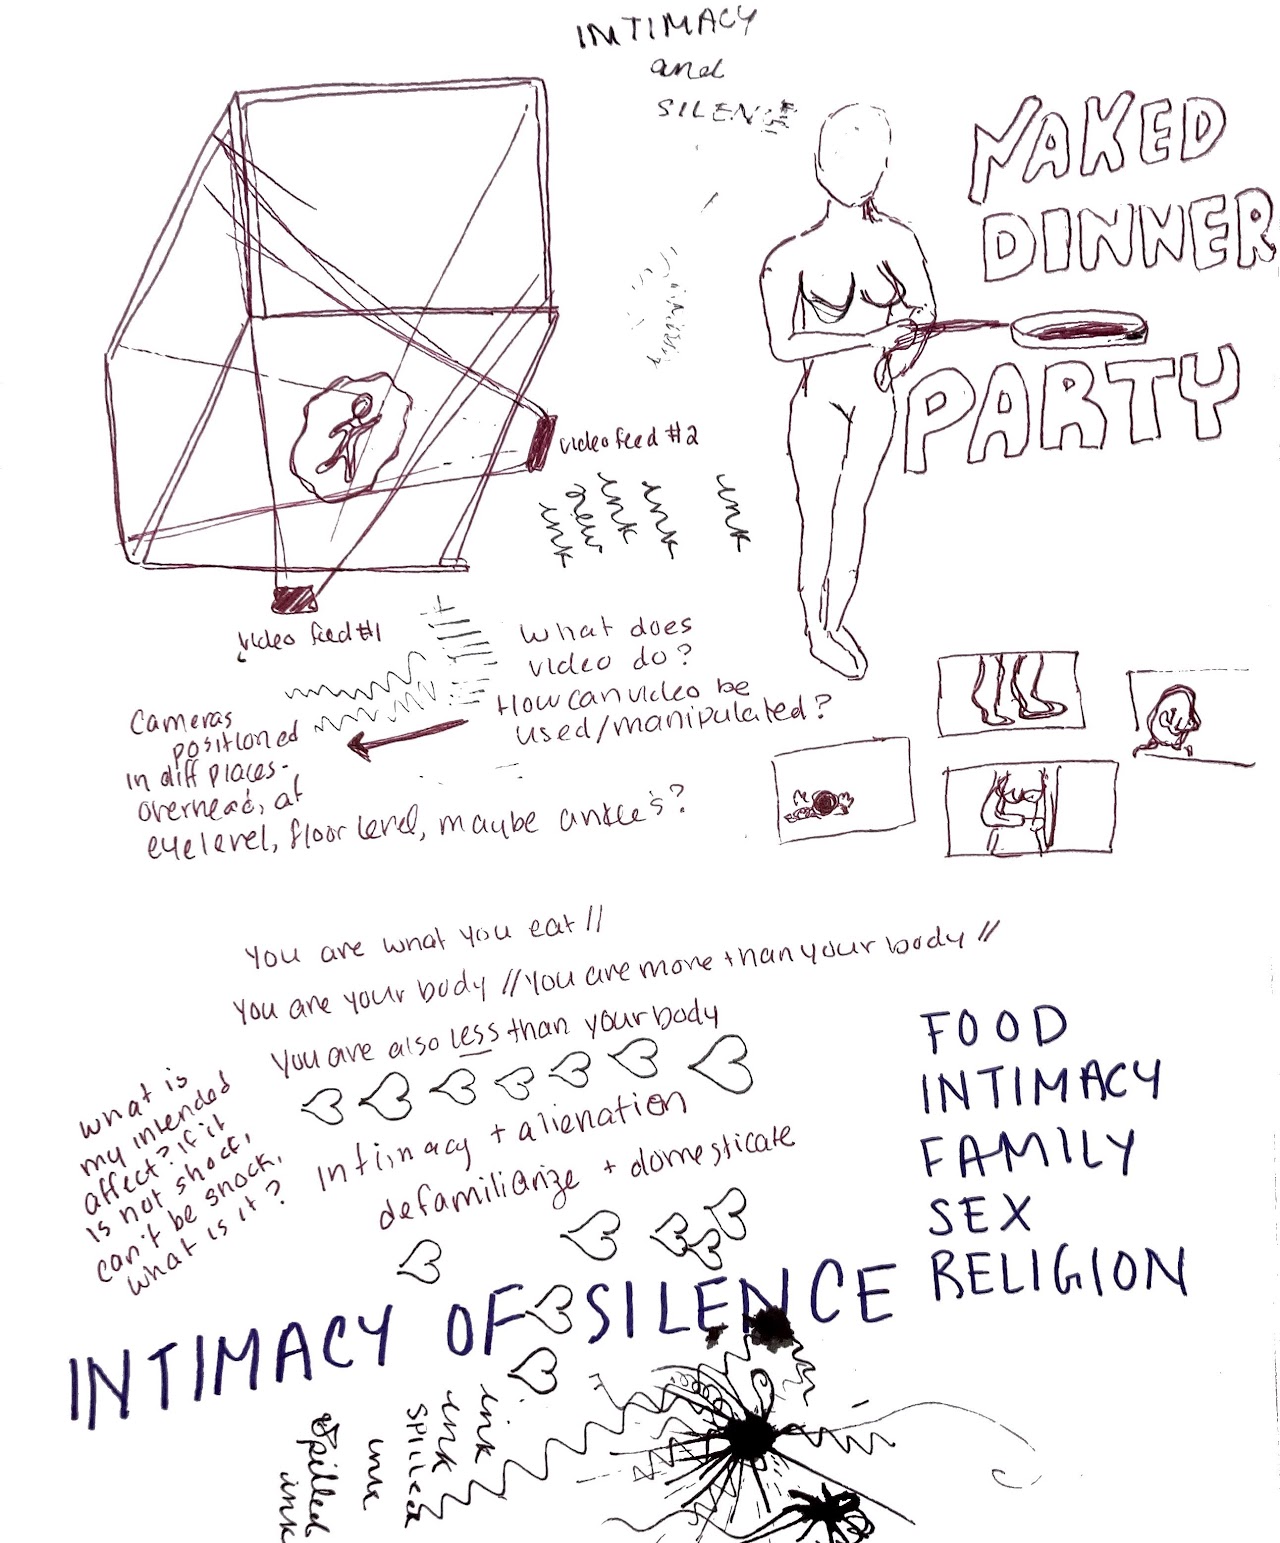 INTIMACY
and
SILENCE
NAKED
DINNER
PARTY
video feed #2
ink
new
ink
ink
ink
video feed #1
What does
video do?
How can video be
used/manipulated?
Cameras
positioned
in diff places-
overhead, at
eyelevel, floor level, maybe ankles?
You are what you eat //
You are your body // You are more than your body //
You are also less than your body
what is
my intended
affect? if it
is not shock,
can't be shock,
what is it?
Intimacy + alienation
defamiliarize + domesticate
FOOD
INTIMACY
FAMILY
SEX
RELIGION
INTIMACY OF SILENCE
ink
ink
spilled
ink
spilled
ink